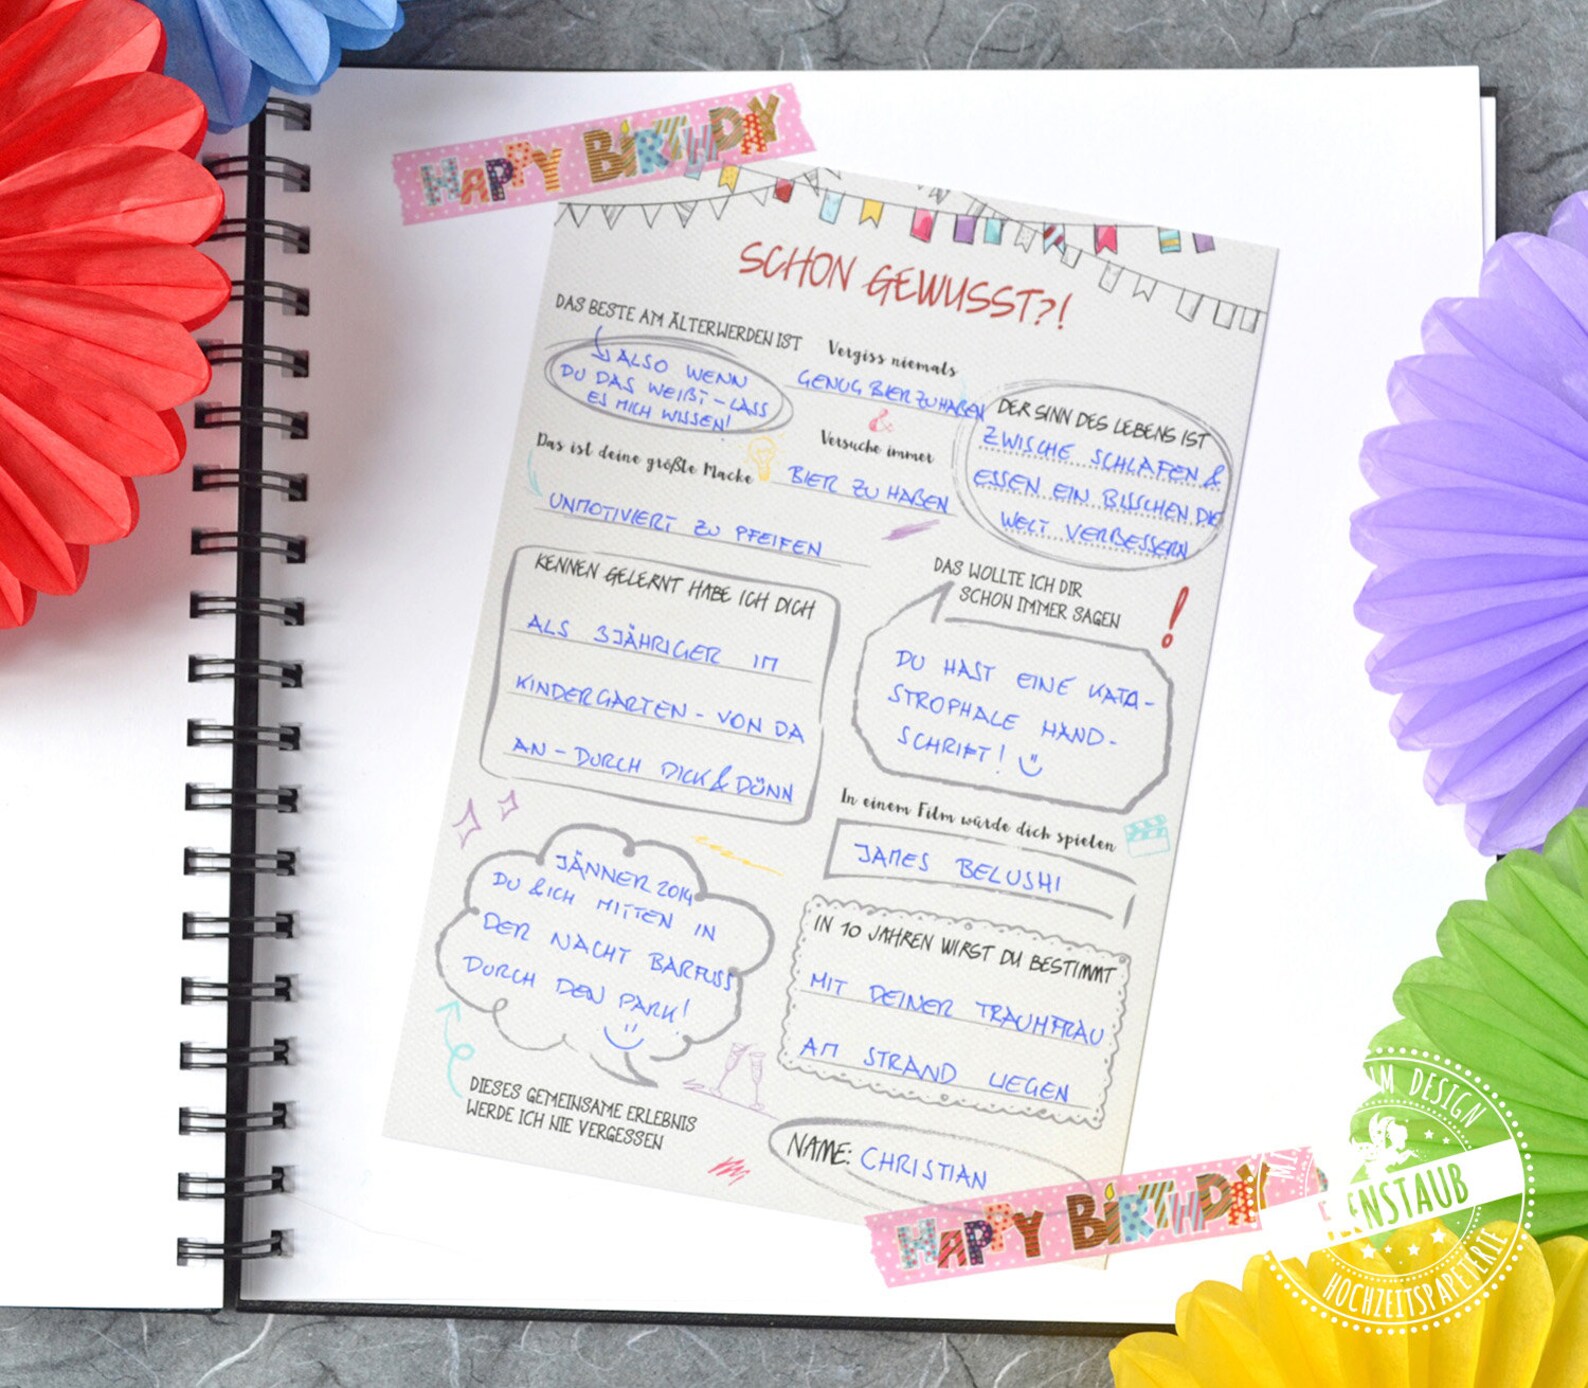 HAPPY BIRTHDAY
SCHON GEWUSST?!
DAS BESTE AM ÄLTERWERDEN IST
ALSO WENN
DU DAS WEIßT – LASS
ES MICH WISSEN!
Vergiss niemals
GENUG BIER ZU HABEN
&
Versuche immer
BIER ZU HABEN
DER SINN DES LEBENS IST
ZWISCHE SCHLAFEN &
ESSEN EIN BISSCHEN DIE
WELT VERBESSERN
Das ist deine größte Macke
UNMOTIVIERT ZU PFEIFEN
KENNEN GELERNT HABE ICH DICH
ALS 3JÄHRIGER IM
KINDERGARTEN - VON DA
AN - DURCH DICK & DÜNN
DAS WOLLTE ICH DIR
SCHON IMMER SAGEN
DU HAST EINE KATA-
STROPHALE HAND-
SCHRIFT!
In einem Film würde dich spielen
JAMES BELUSHI
JÄNNER 2014
DU & ICH MITTEN IN
DER NACHT BARFUSS
DURCH DEN PARK!
DIESES GEMEINSAME ERLEBNIS
WERDE ICH NIE VERGESSEN
IN 10 JAHREN WIRST DU BESTIMMT
MIT DEINER TRAUMFRAU
AM STRAND LIEGEN
NAME: CHRISTIAN
HAPPY BIRTHDAY
DESIGN
ENSTAUB
HOCHZEITSPAPETERIE